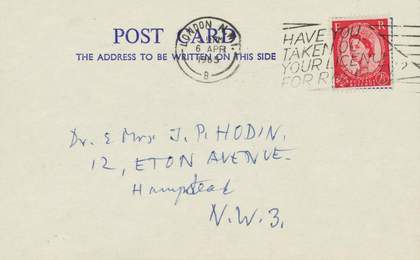 POST CARD
THE ADDRESS TO BE WRITTEN ON THIS SIDE
LONDON N.W.
6 APR
B
HAVE YOU
TAKEN OUT
YOUR LICENCE
FOR
E R
Dr. & Mrs J. P. HODIN.
12, ETON AVENUE.
Hampstead
N.W.3.